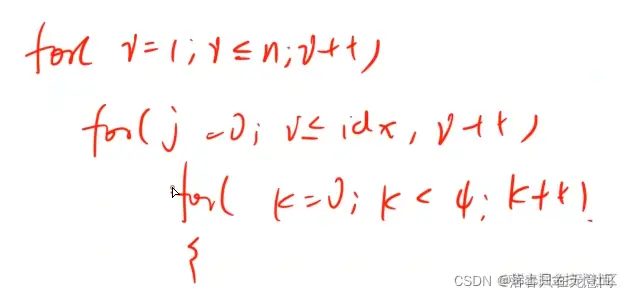 for v=1;v≤n;v++)
for(j=0; v≤idx, v++)
for( k=0; k<4; k++)
{
CSDN